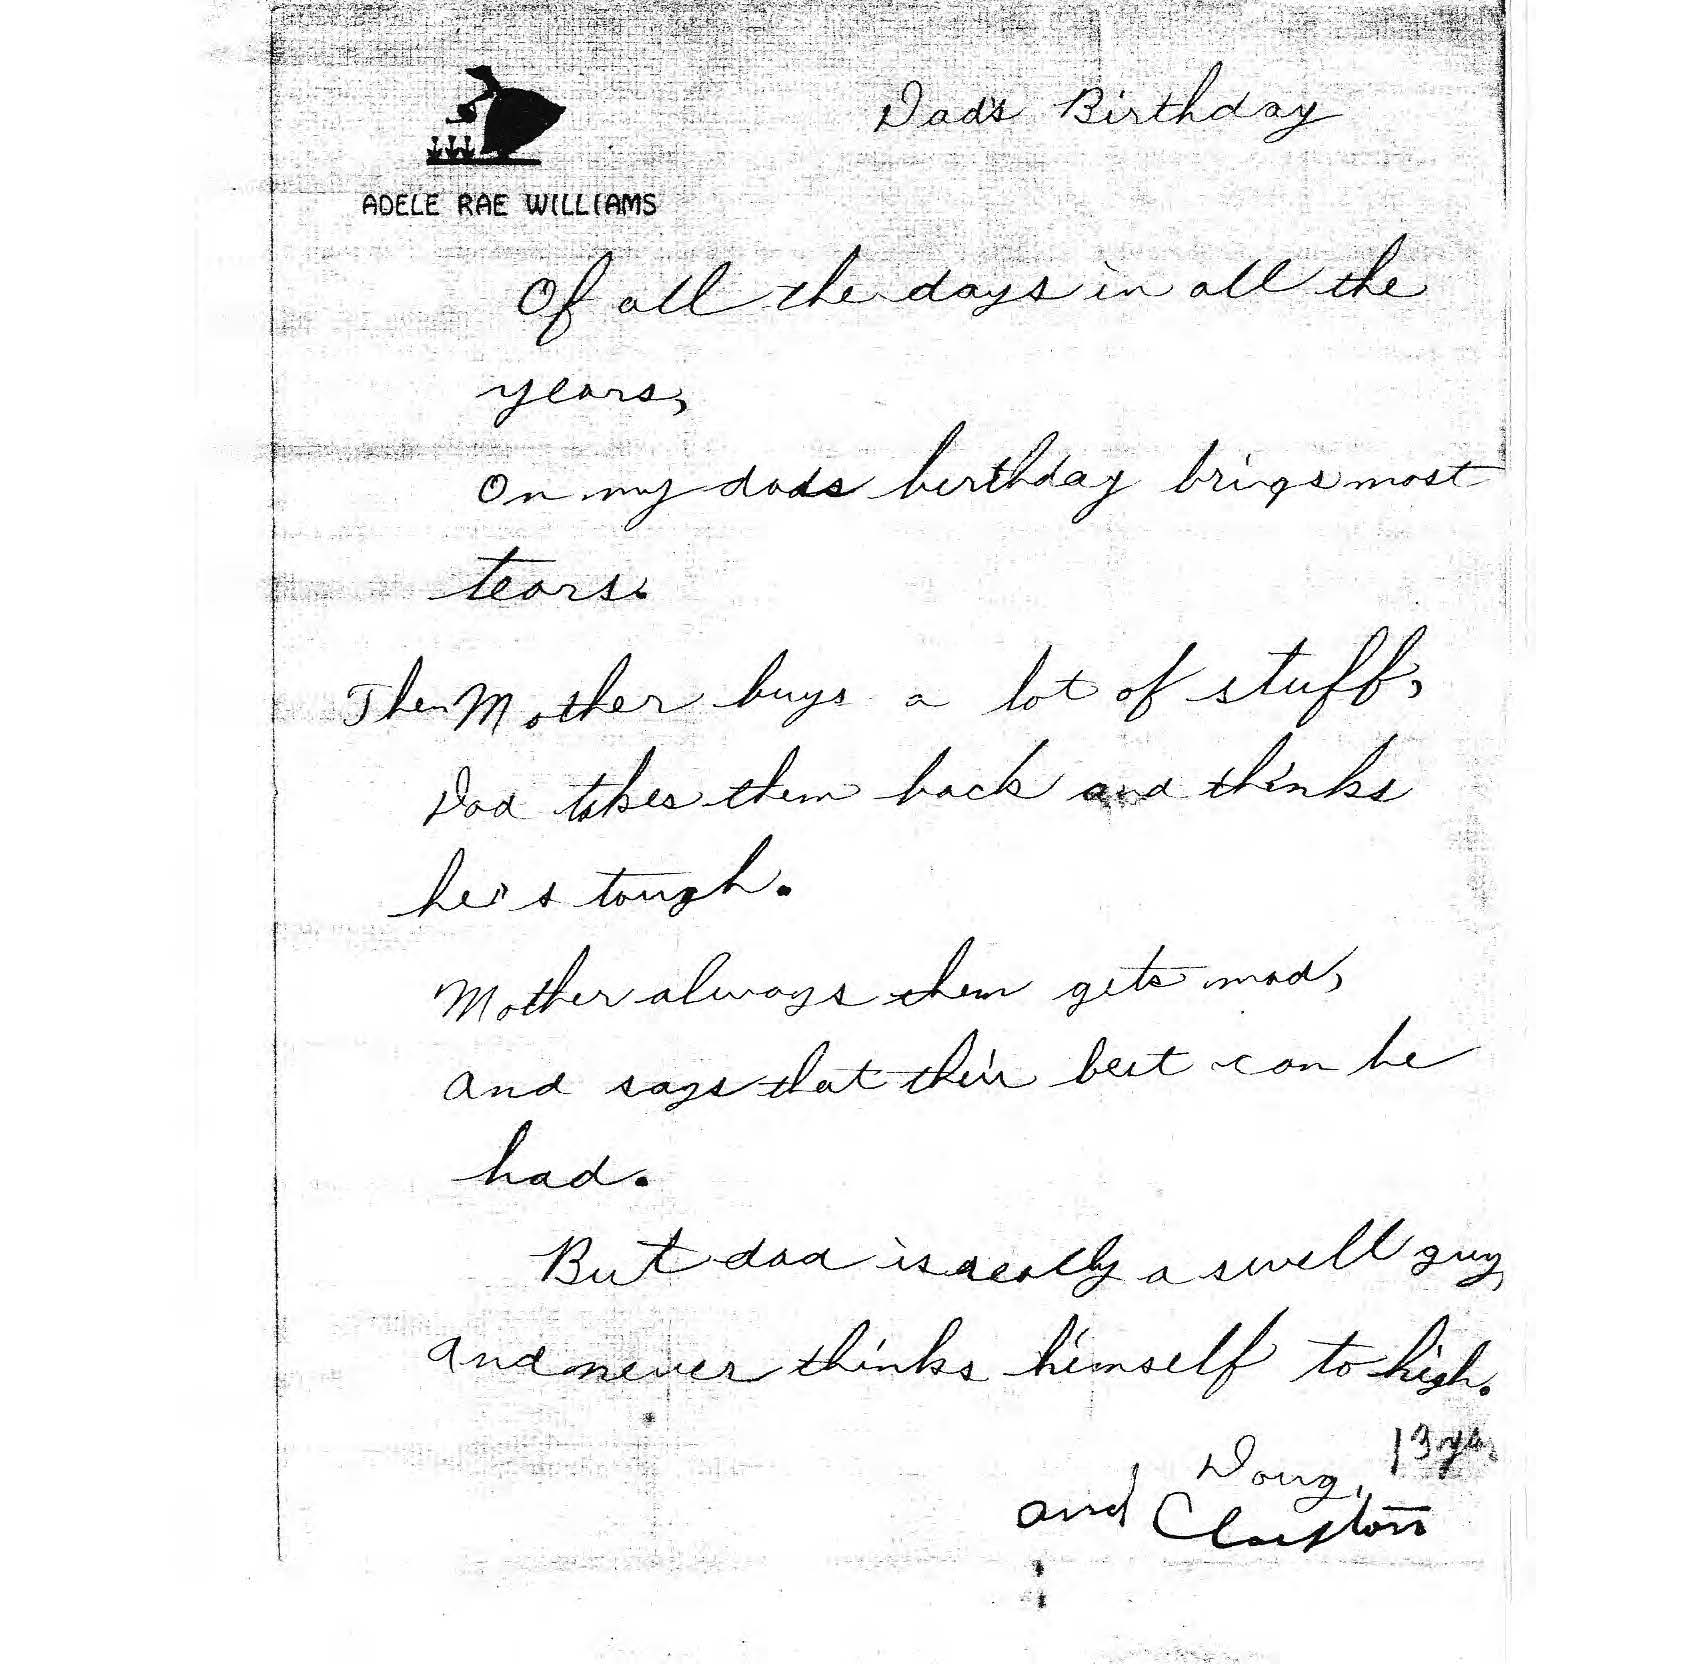 Dad's Birthday
ADELE RAE WILLIAMS
Of all the days in all the
years,
On my dads birthday brings most
tears.
Then Mother buys a lot of stuff,
Dad takes them back and thinks
he's tough.
Mother always them gets mad,
and says that their best can be
had.
But dad is really a swell guy,
and never thinks himself to high.
Doug, 13 yrs.
and Claxton